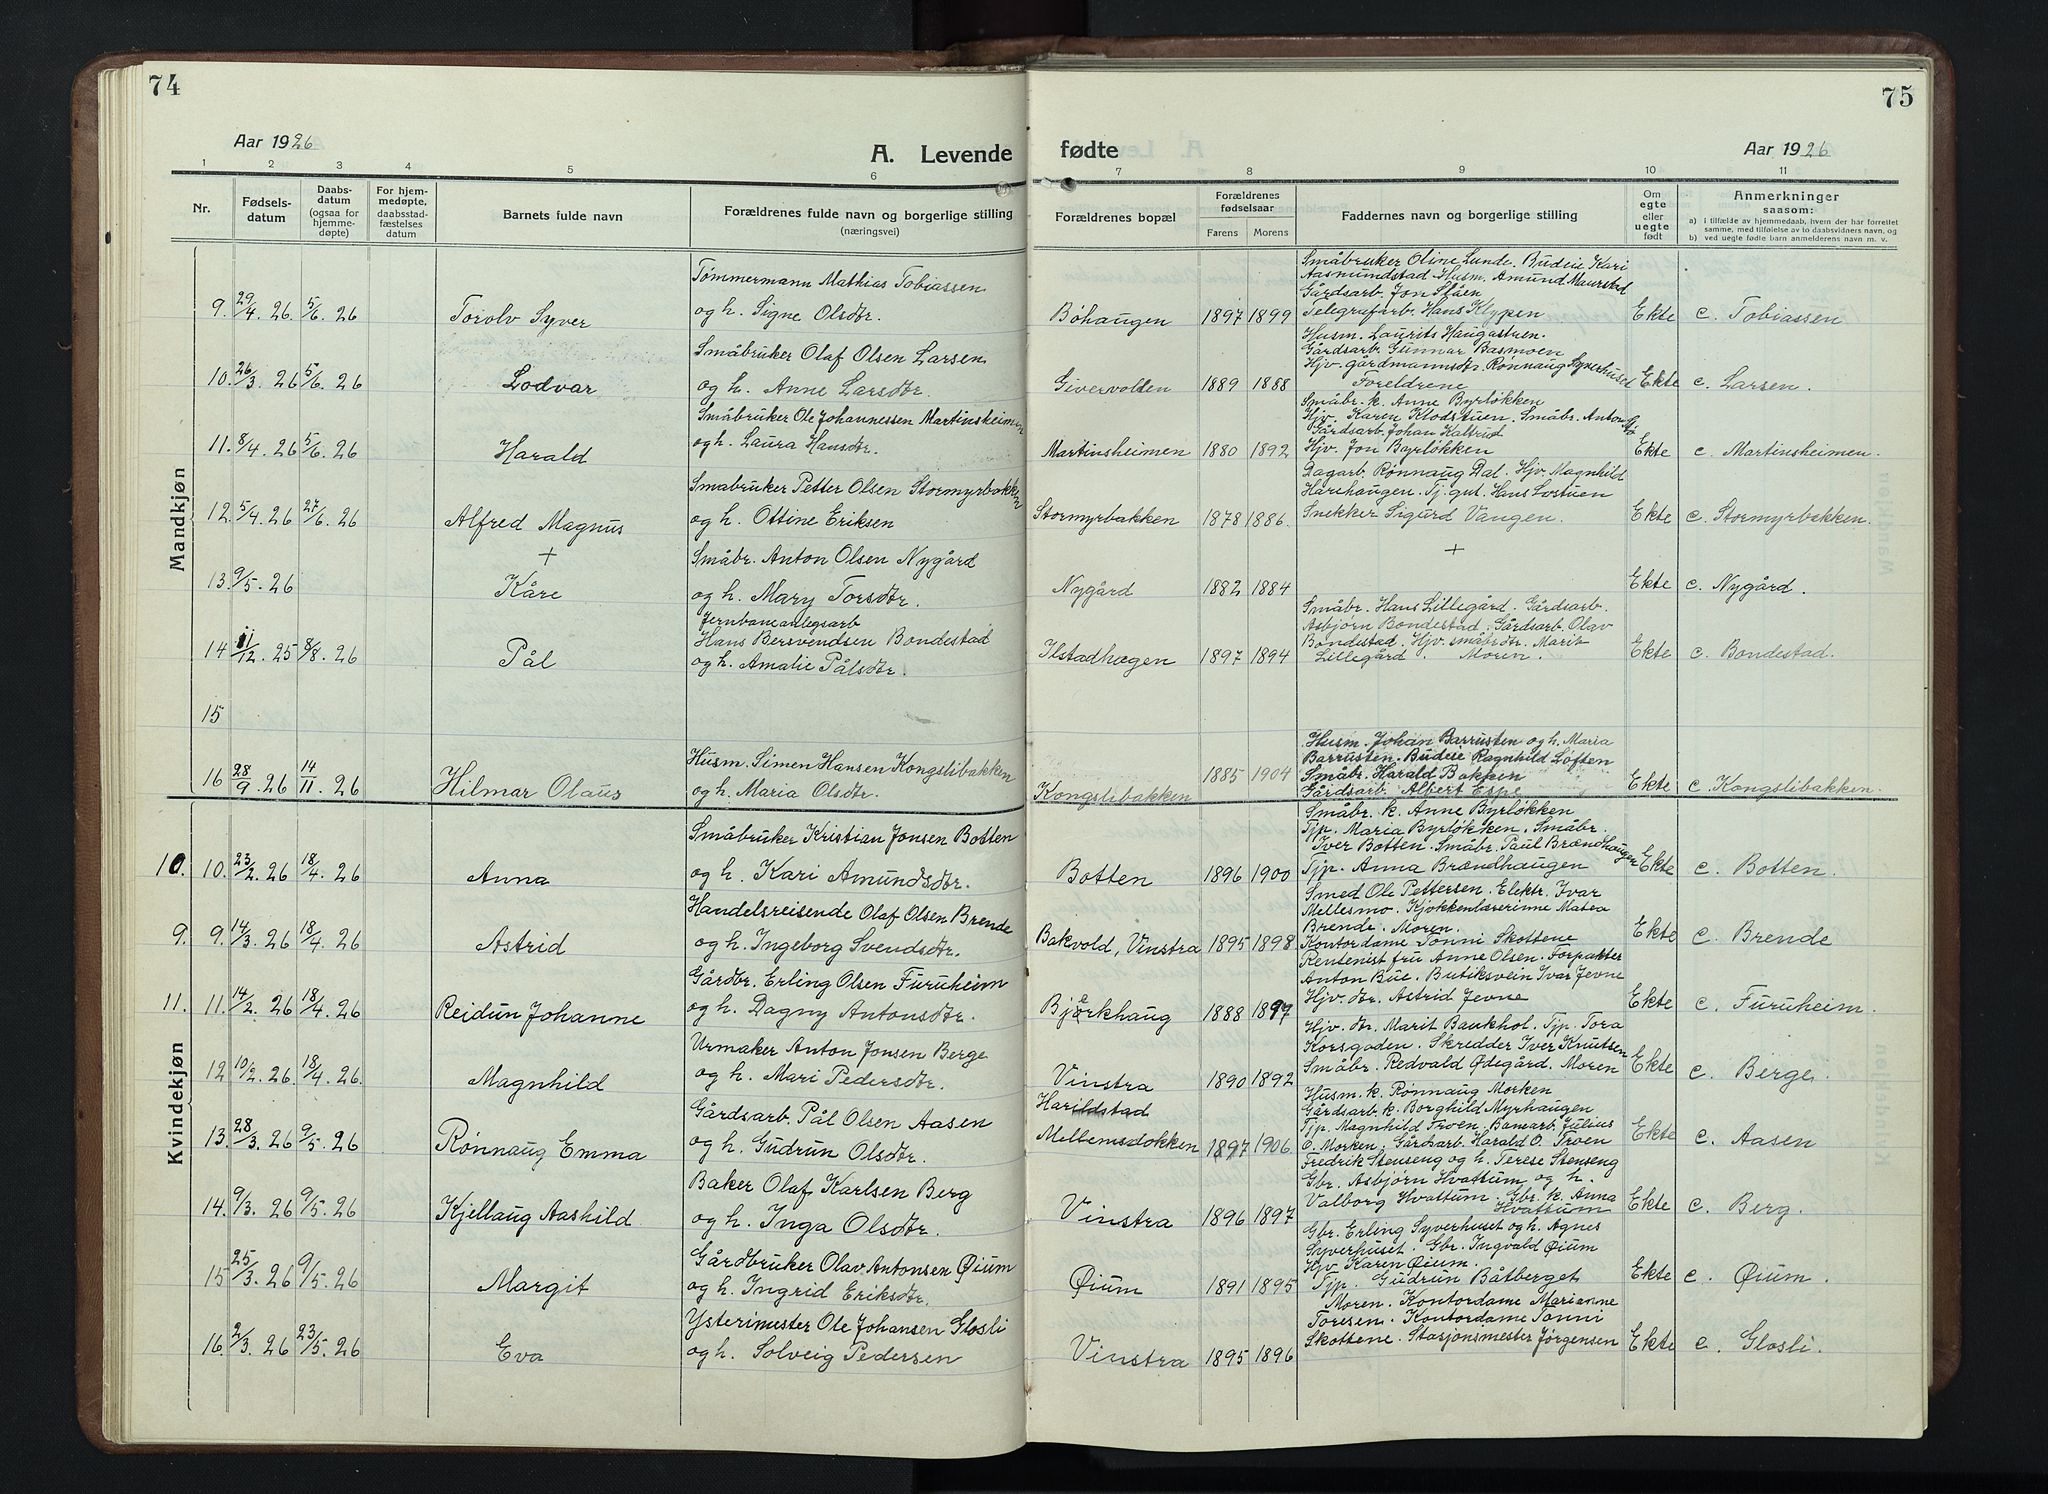 74
Aar 1926
A. Levende
1 2 3 4 5 6
Nr.
Fødsels-
datum
Daabs-
datum
(ogsaa for
hjemme-
døpte)
For hjem-
medøpte,
daabsstad-
fæstelses
datum
Barnets fulde navn
Forældrenes fulde navn og borgerlige stilling
(næringsvei)
Mandkjøn
Tømmermann Mathias Tobiassen
9. 29/4. 26 5/6. 26 Torolv Syver og h. Signe Olsdtr.
Småbruker Olaf Olsen Larsen
10. 26/3. 26 5/6. 26 Lodvar og h. Anne Larsdtr.
Småbruker Ole Johannessen Martinsheimen
11. 8/4. 26 5/6. 26 Harald og h. Laura Hansdtr.
Småbruker Petter Olsen Stormyrbakken
12. 5/4. 26 27/6. 26 Alfred Magnus og h. Ottine Eriksen
+ Småbr. Anton Olsen Nygård
13 9/5. 26 Kåre og h. Mary Torsdtr.
Jernbaneanlegsarb
Hans Bersvendsen Bondestad
14 11/12. 25 8/8. 26 Pål og h. Amalie Pålsdtr.
15
Husm. Simen Hansen Kongslibakken
16 28/9. 26 14/11. 26 Hilmar Olaus og h. Maria Olsdtr.
Kvindekjøn
Småbruker Kristian Jonsen Botten
10. 10. 23/2. 26 18/4. 26 Anna og h. Kari Amundsdtr.
Handelsreisende Olaf Olsen Brende
9. 9. 14/3. 26 18/4. 26 Astrid og h. Ingeborg Svendsdtr.
Gårdbr. Erling Olsen Furuheim
11. 11. 14/2. 26 18/4. 26 Reidun Johanne og h. Dagny Antonsdtr.
Urmaker Anton Jonsen Berge
12 10/2. 26 18/4. 26. Magnhild og h. Mari Pedersdtr.
Gårdsarb. Pål Olsen Aasen
13. 28/3. 26 9/5. 26 Rønnaug Emma og h. Gudrun Olsdtr.
Baker Olaf Karlsen Berg
14. 9/3. 26 9/5. 26 Kjellaug Aashild og h. Inga Olsdtr.
Gårdbruker Olav Antonsen Øium
15 25/3. 26 9/5. 26 Margit og h. Ingrid Eriksdtr.
Ysterimester Ole Johansen Glosli
16. 2/3. 26 23/5. 26 Eva og h. Solveig Pedersen
75
fødte
Aar 1926
7 8 9 10 11
Forældrenes bopæl
Forældrenes
fødselsaar
Farens Morens
Faddernes navn og borgerlige stilling
Om
egte
eller
uegte
født
Anmerkninger
saasom:
a) i tilfælde av hjemmedaab, hvem der har forrettet
samme, med tilføielse av to daabsvidners navn, og
b) ved uegte fødte barn anmelderens navn m. v.
Småbruker Oline Lunde. Budeie Kari
Aasmundstad Husm. Amund Maurstad
Gårdsarb. Jon Slåen
Bøhaugen 1897 1899 Telegrafarb. Hans Klypen Ekte c. Tobiassen
Husm. Laurits Haugastuen.
Gårdsarb. Gunnar Basmoen
Hjv. gårdmannsdtr. Rønnaug Syverhuset
Givervolten 1889 1888 Foreldrene Ekte c. Larsen.
Småbr. k. Anne Byrløkken
Hjv. Karen Klodstuen. Småbr. Anton
Gårdsarb. Johan Kaltrud
Martinsheimen 1880 1892 Hjv. Jon Byrløkken Ekte c. Martinsheimen.
Dagarb. Rønnaug Dal. Hjv. Magnhild
Harehaugen. Tj. gut. Hans Lostuen
Stormyrbakken 1878 1886. Snekker Sigurd Vangen. Ekte c. Stormyrbakken.
+
Nygård 1882 1884 Ekte c. Nygård.
Småbr. Hans Lillegård. Gårdsarb.
Asbjørn Bondestad. Gårdsarb. Olav
Bondestad. Hjv. småbrdtr. Marit
Ilstadhagen 1897 1894 Lillegård. Moren. Ekte c. Bondestad.
Husm. Johan Barrusten og h. Maria
Barrusten. Budeie Ragnhild Løften
1885 1904 Småbr. Harald Bakken
Kongslibakken Gårdsarb. Albert Espe Ekte c. Kongslibakken.
Småbr. k. Anne Byrløkken
Tjp. Maria Byrløkken. Småbr.
Iver Botten. Småbr. Paul Brændhaugen
Botten 1896 1900 Tjp. Anna Brændhaugen Ekte c. Botten.
Smed Ole Pettersen. Elektr. Ivar
Mellesmo. Kjøkkenlærerinne Matea
Brende. Moren.
Bakvold, Vinstra 1895 1898 Kontordame Tonni Skottene Ekte c. Brende
Rentenist fru Anne Olsen. Forpakter
Anton Bue. Butiksvein Ivar Jevne
Bjerkhaug 1888 1897 Hjv. dtr. Astrid Jevne Ekte c. Furuheim.
Hjv. dtr. Marit Baukhol. Tjp. Tora
Korsgaden. Skredder Iver Knutsen
Vinstra 1890 1892 Småbr. Redvald Ødegård. Moren Ekte c. Berge
Husm. k. Rønnaug Morken
Harildstad Gårdsarb. k. Borghild Myrhaugen
Tjp. Magnhild Troen. Banearb. Julius
Mellemsdokken 1897 1906. O. Morken. Gårdsarb. Harald O. Troen Ekte c. Aasen
Fredrik Stenseng og h. Terese Stenseng
Gbr. Asbjørn Hvattum og h.
Valborg Hvattum. Gbr. k. Anna
Vinstra 1896 1897 Hvattum Ekte c. Berg.
Gbr. Erling Syverhuset og h. Agnes
Syverhuset. Gbr. Ingvald Øium
Hjv. Karen Øium.
Øium 1891 1895 Tjp. Gudrun Båtberget Ekte c. Øium.
Moren. Kontordame Marianne
Toresen. Kontordame Tonni
Vinstra 1895 1896 Skottene. Stasjonsmester Jørgensen Ekte c. Glosli.